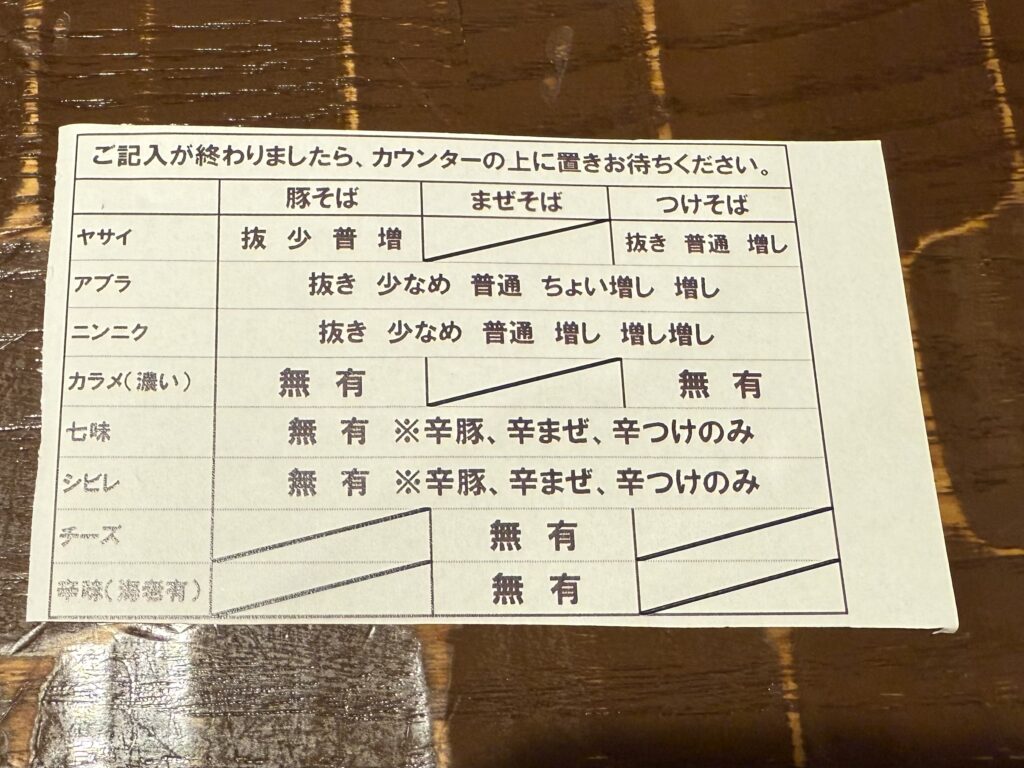 ご記入が終わりましたら、カウンターの上に置きお待ちください。
豚そば まぜそば つけそば
ヤサイ 抜 少 普 増 抜き 普通 増し
アブラ 抜き 少なめ 普通 ちょい増し 増し
ニンニク 抜き 少なめ 普通 増し 増し増し
カラメ(濃い) 無 有 無 有
七味 無 有 ※辛豚、辛まぜ、辛つけのみ
シビレ 無 有 ※辛豚、辛まぜ、辛つけのみ
チーズ 無 有
辛味(海老有) 無 有